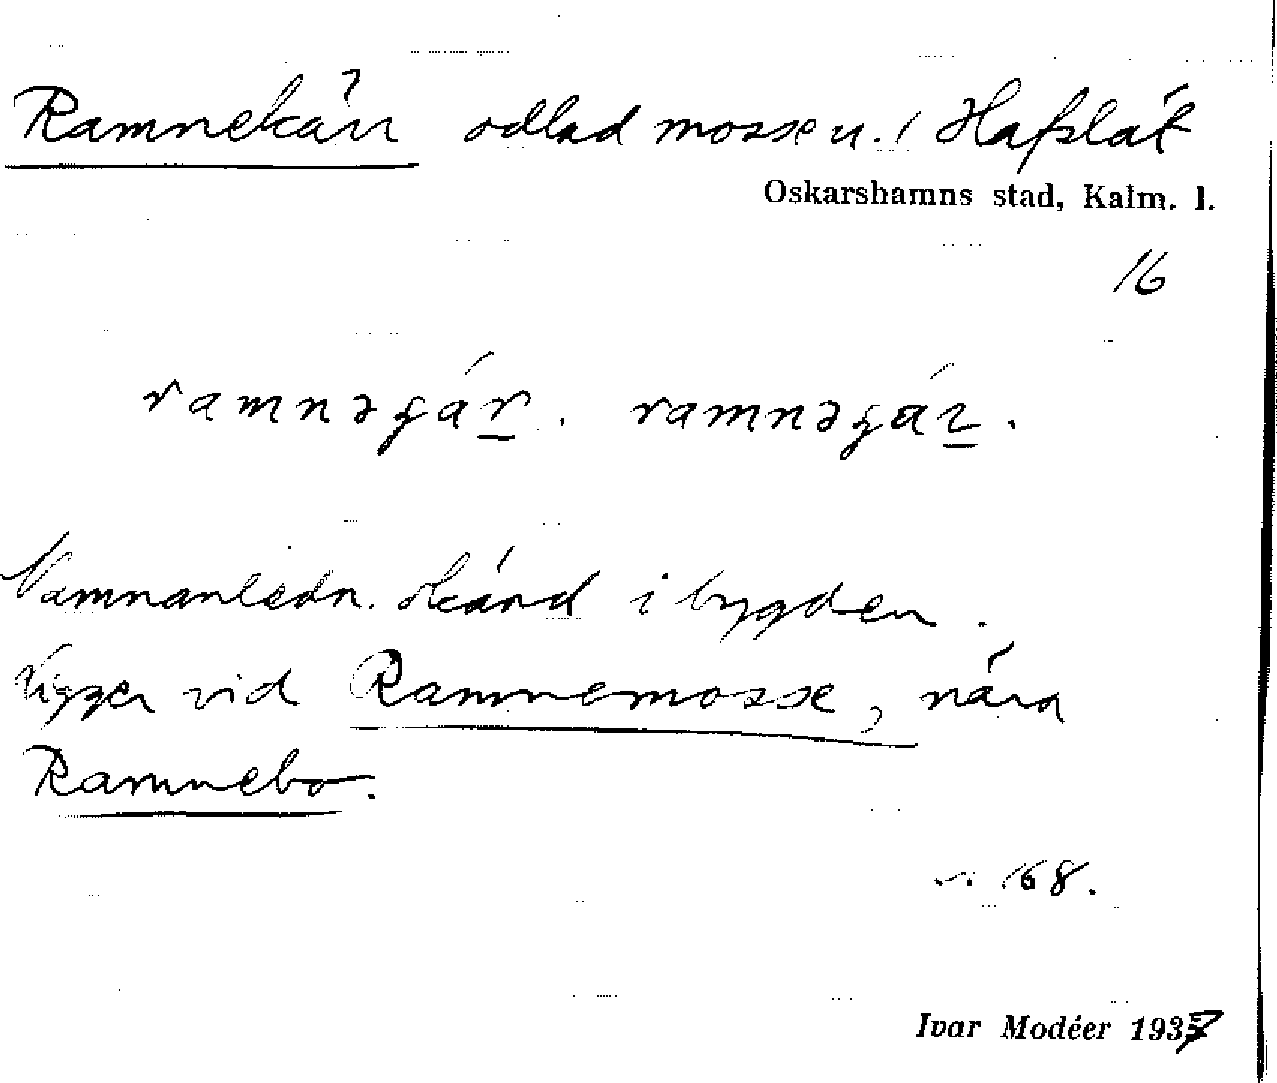 Ramnekärr odlad mosse u. / Havslätt
Oskarshamns stad, Kalm. l.
16
ramnəgär. ramnəgär.
Namnanledn. okänd i bygden.
Ligger vid Ramnemosse, nära
Ramnebo.
n:r 168.
Ivar Modéer 1937